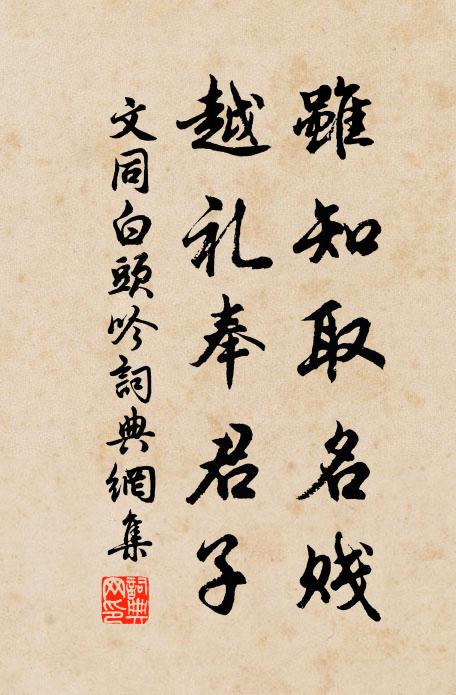 雖知取名賤
越礼奉君子
文同白頭吟詞典網集
詞典網印